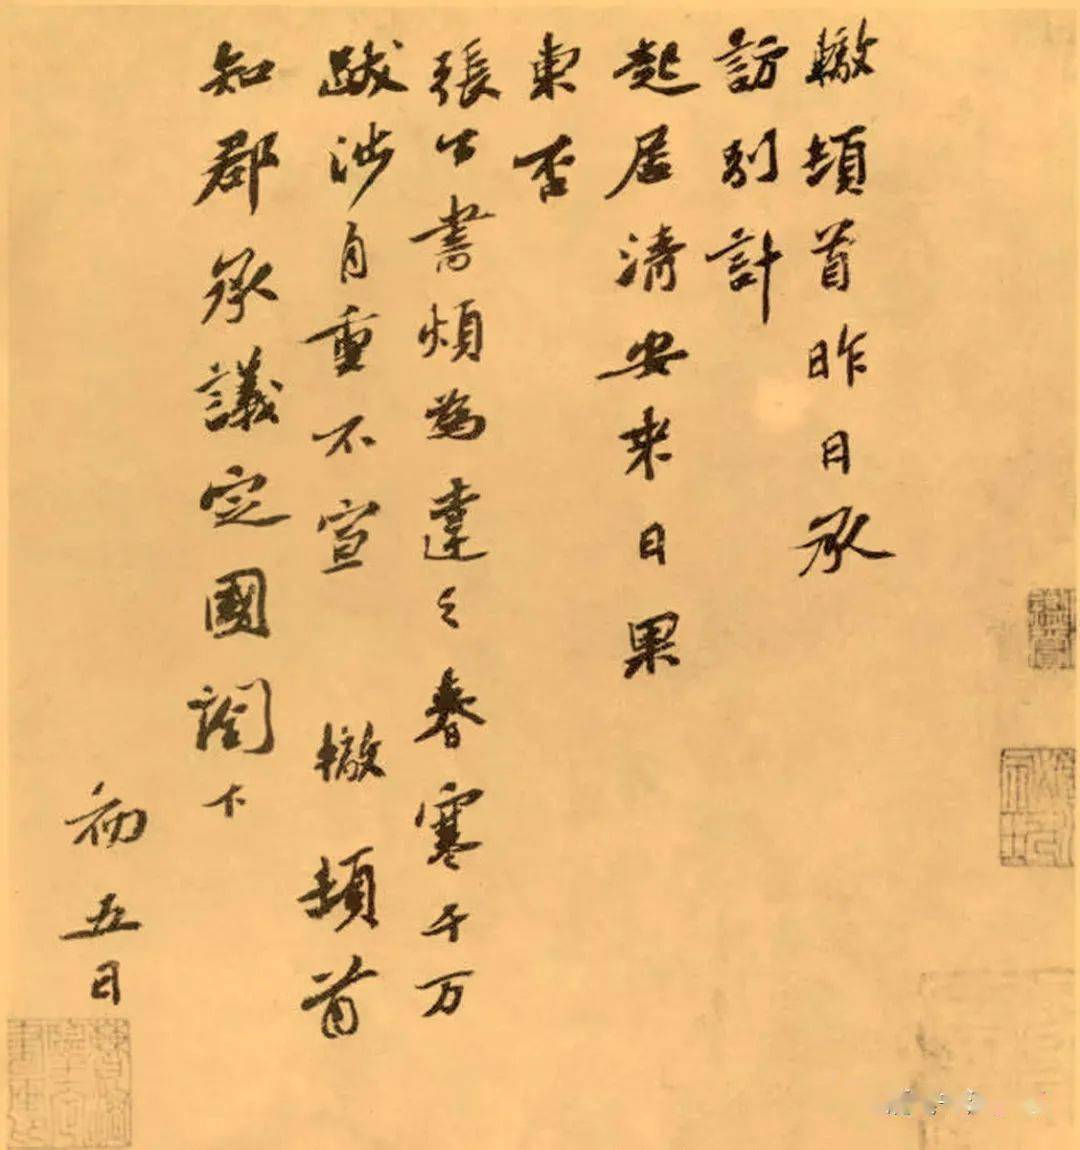 轍頓首昨日承
訪別計
起居清安来日果
東否
張公書煩為達之春寒千万
跋涉自重不宣　轍頓首
知郡承議定國閤下
初五日